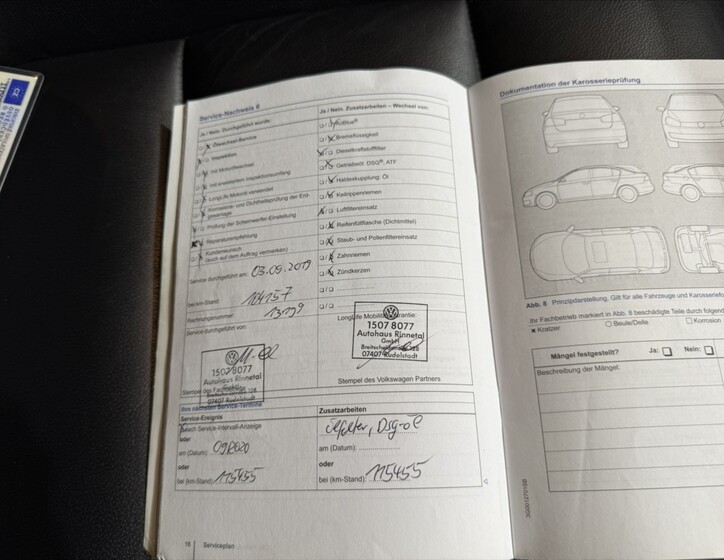 Service-Nachweis 6
Ja / Nein. Durchgeführt wurde:
Ölwechsel-Service
Inspektion
mit Motorölwechsel
mit erweitertem Inspektionsumfang
LongLife Motoröl verwendet
Prüfung der Scheinwerfer-Einstellung
Reparaturempfehlung
Kundenwunsch
(auch auf dem Auftrag vermerken)
Service durchgeführt am: 03.09.2019
bei km-Stand: 104157
Rechnungsnummer:
Service durchgeführt von:
15078077
Autohaus Rinnetal
GmbH
07407 Rudolstadt
Ja / Nein. Zusatzarbeiten – Wechsel von:
Bremsflüssigkeit
Dieselkraftstofffilter
Getriebeöl: DSG®, ATF
Haldexkupplung: Öl
Keilrippenriemen
Luftfiltereinsatz
Reifenfüllflasche (Dichtmittel)
Staub- und Pollenfiltereinsatz
Zahnriemen
Zündkerzen
LongLife Mobilitätsgarantie:
1507 8077
Autohaus Rinnetal
GmbH
07407 Rudolstadt
Stempel des Volkswagen Partners
Ihre nächsten Service-Termine
Service-Ereignis
nach Service-Intervall-Anzeige
oder
am (Datum): 09/2020
oder
bei (km-Stand): 115455
Zusatzarbeiten
am (Datum):
oder
bei (km-Stand): 115455
16 Serviceplan
Dokumentation der Karosserieprüfung
Abb. 8 Prinzipdarstellung. Gilt für alle Fahrzeuge und
Ihr Fachbetrieb markiert in Abb. 8 beschädigte Teile durch
× Kratzer ○ Beule/Delle □ Korrosion
Mängel festgestellt? Ja: Nein:
Beschreibung der Mängel: